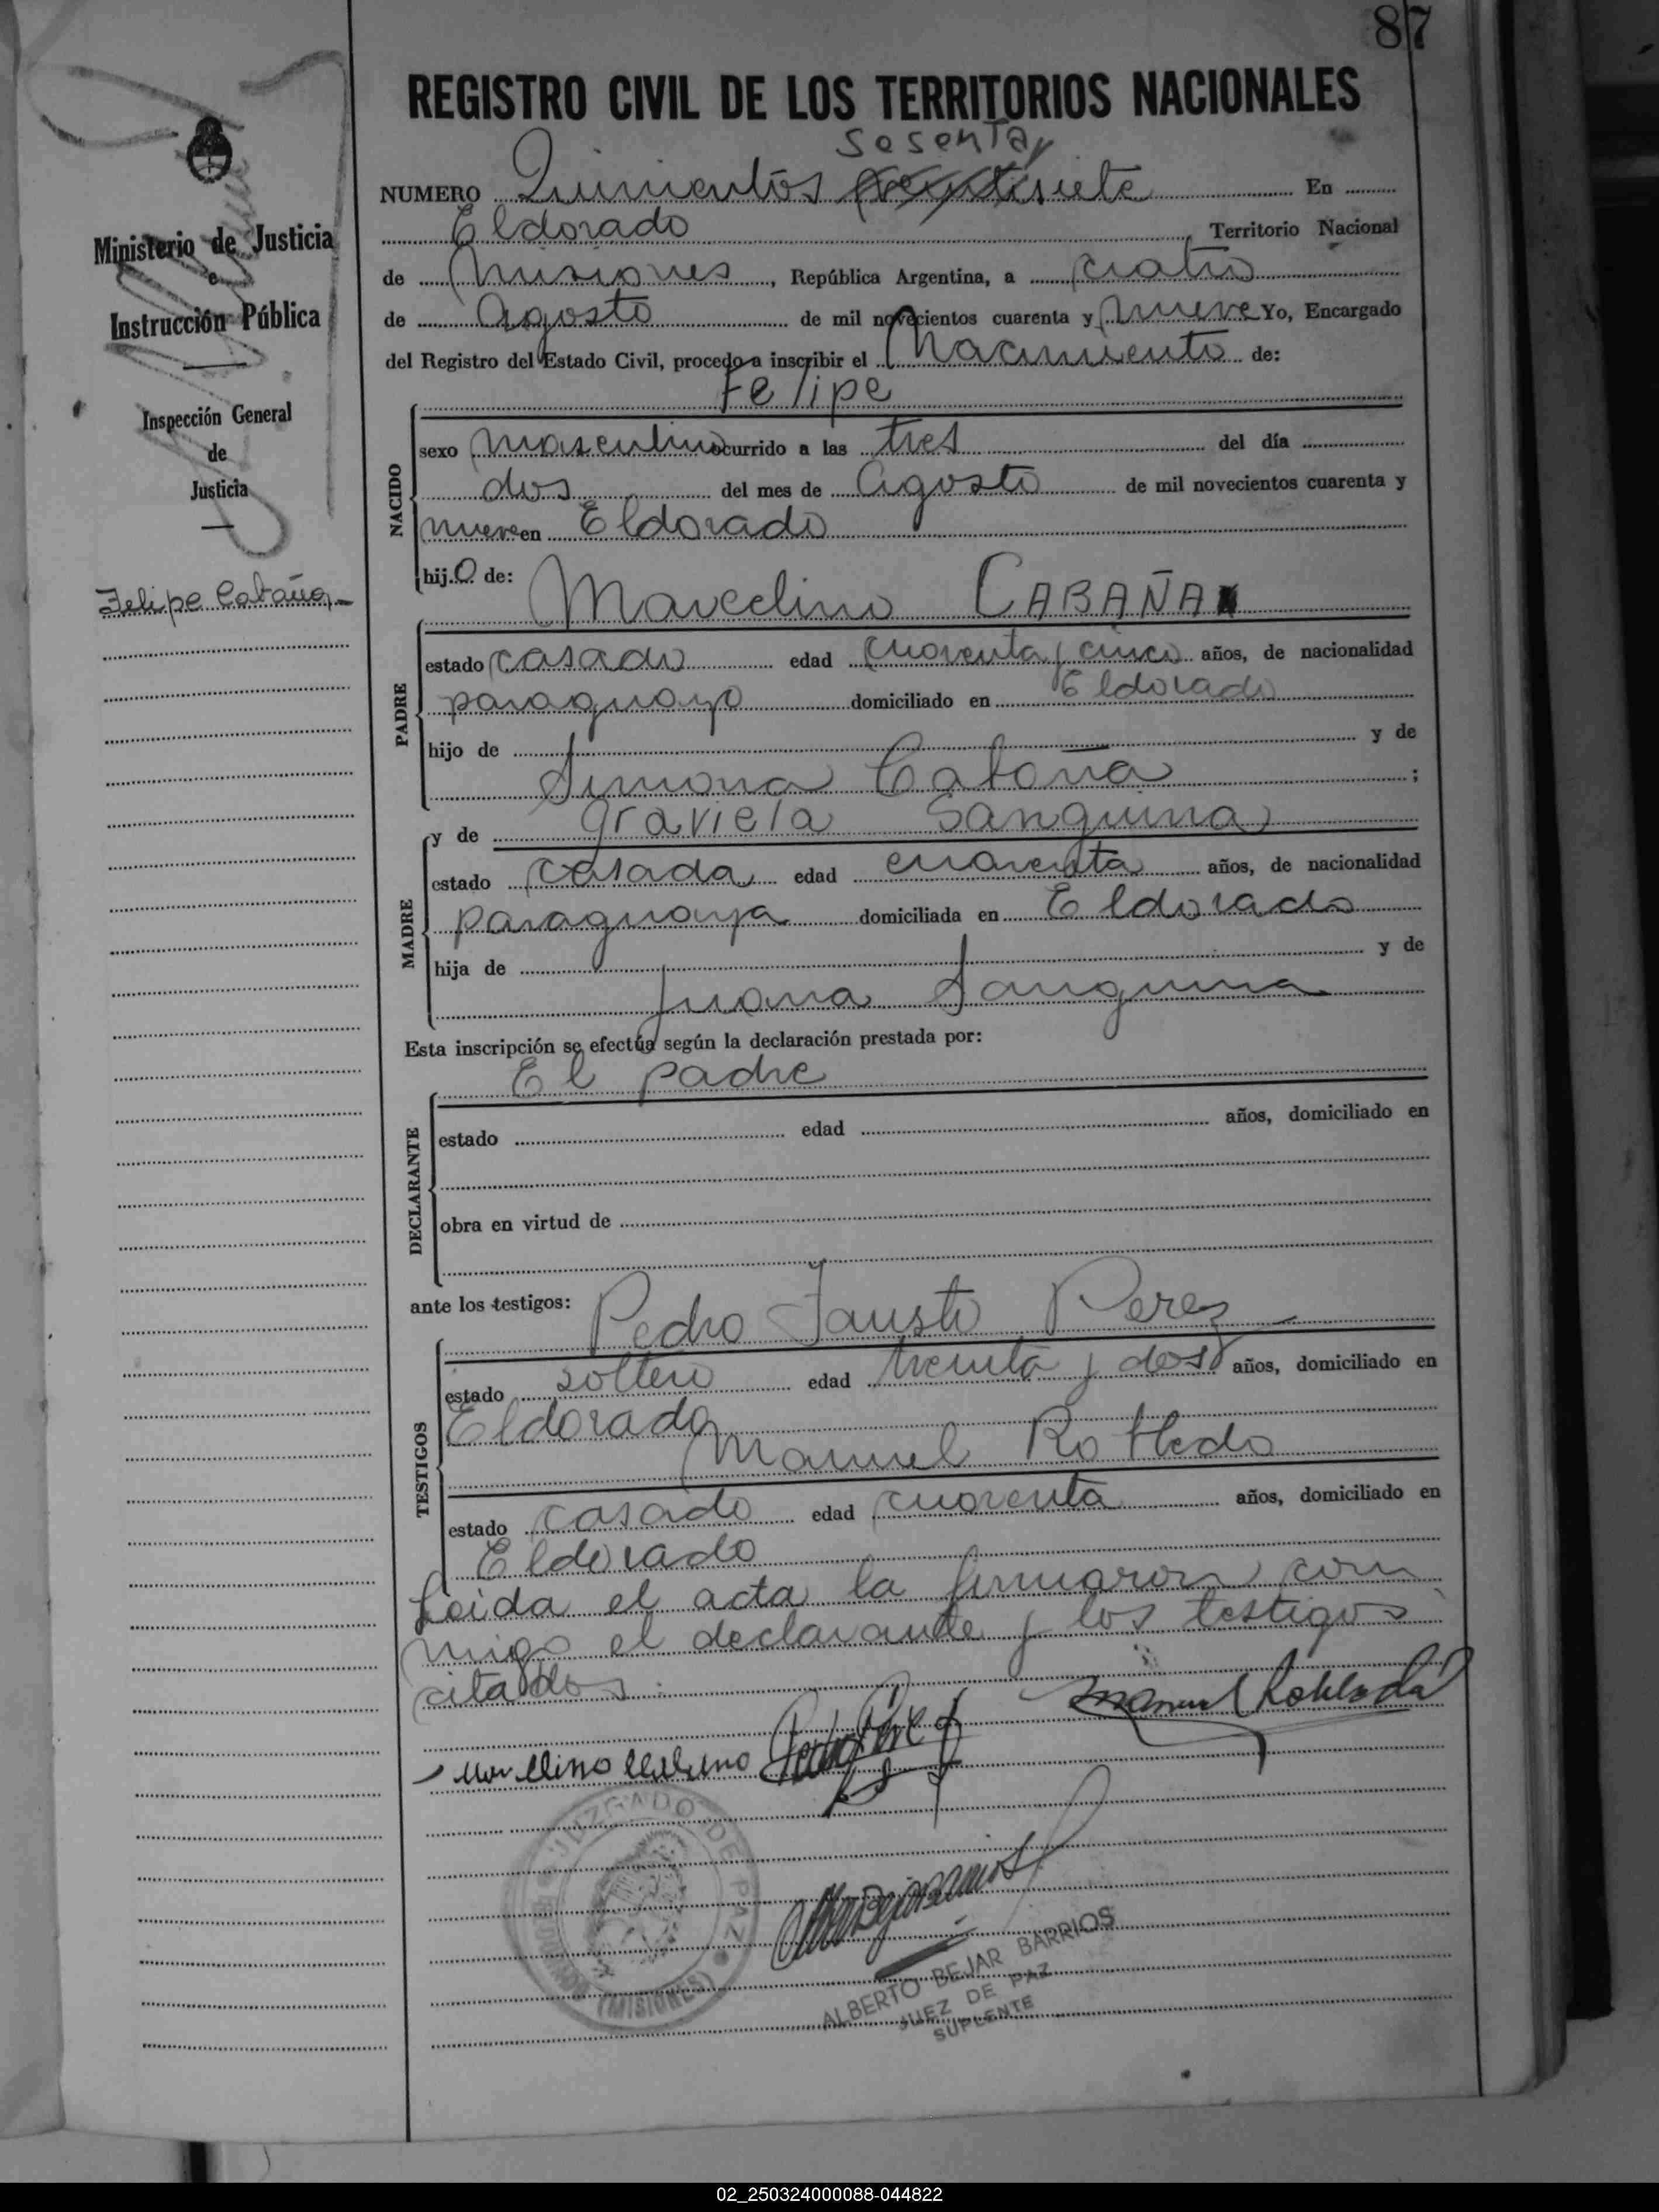 87
REGISTRO CIVIL DE LOS TERRITORIOS NACIONALES
sesenta y
NUMERO Quinientos veintisiete En
Eldorado Territorio Nacional
de Misiones, República Argentina, a cuatro
de Agosto de mil novecientos cuarenta y nueve Yo, Encargado
del Registro del Estado Civil, procedo a inscribir el Nacimiento de:
Felipe
NACIDO
sexo masculino ocurrido a las tres del día
dos del mes de Agosto de mil novecientos cuarenta y
nueve en Eldorado
hijo de:
Marcelino CABAÑA
PADRE
estado casado edad cuarenta y cinco años, de nacionalidad
paraguayo domiciliado en Eldorado
hijo de y de
Simona Cabaña ;
y de Graviela Sanguina
MADRE
estado casada edad cuarenta años, de nacionalidad
paraguaya domiciliada en Eldorado
hija de y de
Juana Sanguina
Esta inscripción se efectúa según la declaración prestada por:
El padre
DECLARANTE
estado edad años, domiciliado en
obra en virtud de
ante los testigos: Pedro Fausto Perez
TESTIGOS
estado soltero edad treinta y dos años, domiciliado en
Eldorado
Manuel Robledo
estado casado edad cuarenta años, domiciliado en
Eldorado
Leida el acta la firmaron con
migo el declarante y los testigos
citados.
Manuel Robledo
JUZGADO DE PAZ
ELDORADO (MISIONES)
ALBERTO BEJAR BARRIOS
JUEZ DE PAZ
SUPLENTE
Ministerio de Justicia
e
Instrucción Pública
Inspección General
de
Justicia
Felipe Cabaña
02_250324000088-044822